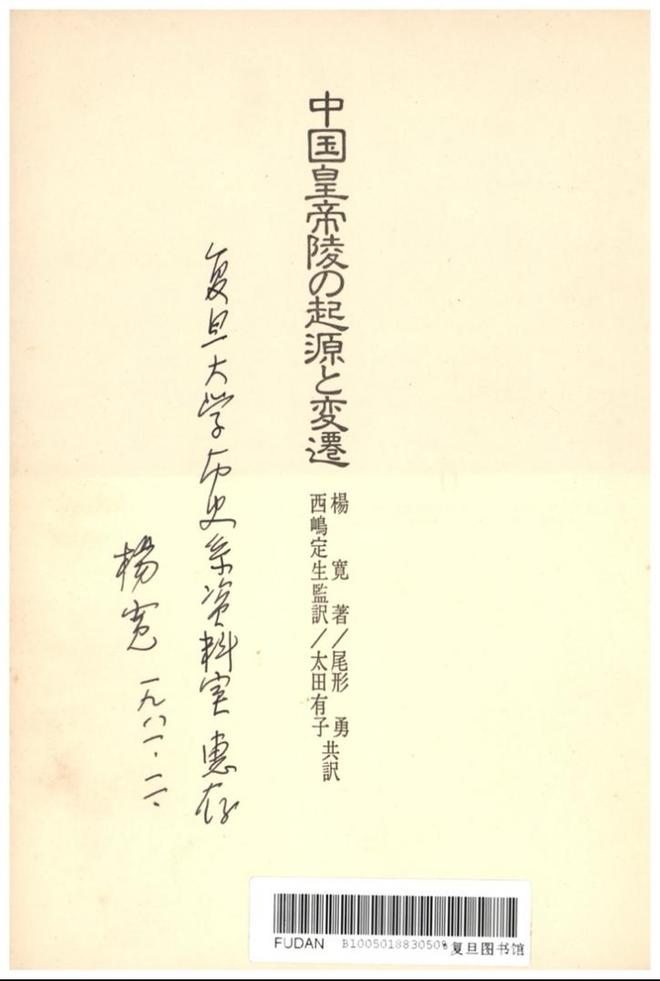 中国皇帝陵の起源と変遷
楊 寛 著/尾形 勇
西嶋定生監訳/太田有子
共訳
复旦大学历史系资料室惠存
楊寛 一九八一.一一.
FUDAN B1005018830509 复旦图书馆